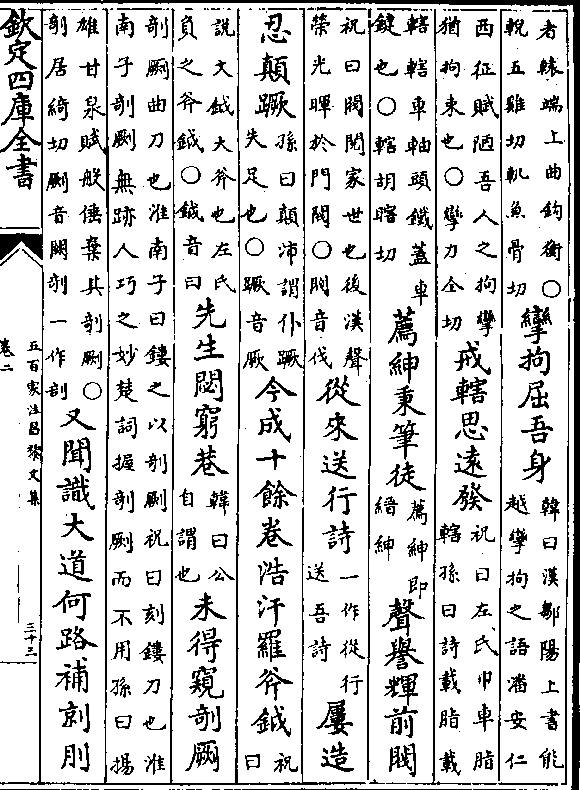 者轅端上曲鈎衡○
輗五雞切軏魚骨切
攣拘屈吾身
韓曰漢鄒陽上書能
越攣拘之語潘安仁
西征賦陋吾人之拘攣
猶拘束也○攣力全切
戒轄思遠發
祝曰左氏巾車脂
轄孫曰詩載脂載
轄轄車軸頭鐵蓋車
鍵也○轄胡瞎切
薦紳秉筆徒
薦紳即
縉紳
聲譽輝前閥
祝曰閥閱家世也後漢聲
榮光暉於門閥○閥音伐
從來送行詩
一作從行
送吾詩
屢造
忍顛蹶
孫曰顛沛謂仆蹶
失足也○蹶音厥
今成十餘卷浩汗羅斧鉞
祝
曰
說文鉞大斧也左氏
負之斧鉞○鉞音曰
先生閟窮巷
韓曰公
自謂也
未得窺剞劂
剞劂曲刀也淮南子曰鏤之以剞劂祝曰刻鏤刀也淮
南子剞劂無跡人巧之妙楚詞握剞劂而不用孫曰揚
雄甘泉賦般倕棄其剞劂○
剞居綺切劂音闕剞一作剖
又聞識大道何路補剠刖
欽定四庫全書
卷二
五百家注昌黎文集
三十三